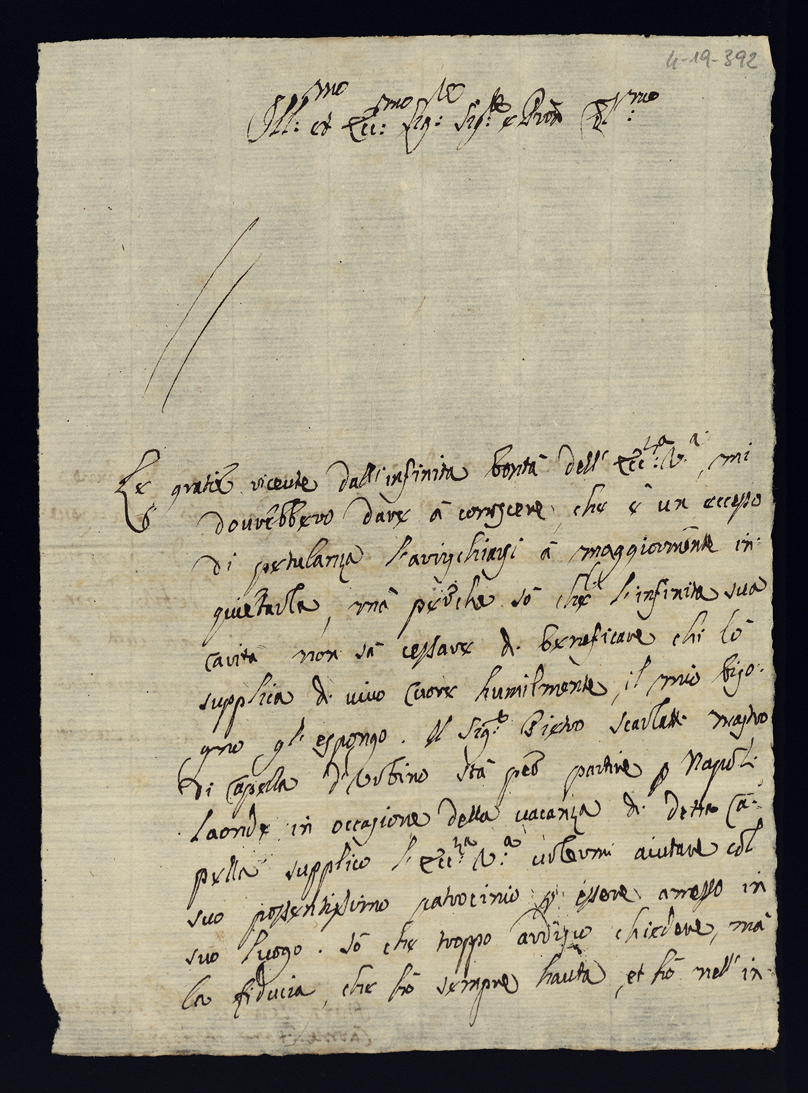 4-19-392
Ill:mo et Ecc:mo Sig:re Sig:re e Pron Col:mo
Le gratie riceute dall'infinita bontà dell'Ecc:za V:a, mi
dourebbero dare à conoscere, che è un eccesso
di petulanza l'arrischiarsi à maggiormente in-
quietarla, mà perche sò che l'infinita sua
carità non sà cessare di beneficare chi lo
supplica di vivo cuore humilmente, il mio biso-
gno gl'espongo. Il Sig:re Pietro Scarlatti mastro
di Capella d'Urbino stà per partire p Napoli
laonde in occasione della vacanza di detta Ca-
pella supplico l'Ecc:za V:a volermi aiutare col
suo potentissimo patrocinio p essere ammesso in
suo luogo. Sò che troppo ardisco chiedere, mà
la fiducia, che hò sempre hauta, et hò nell'in-